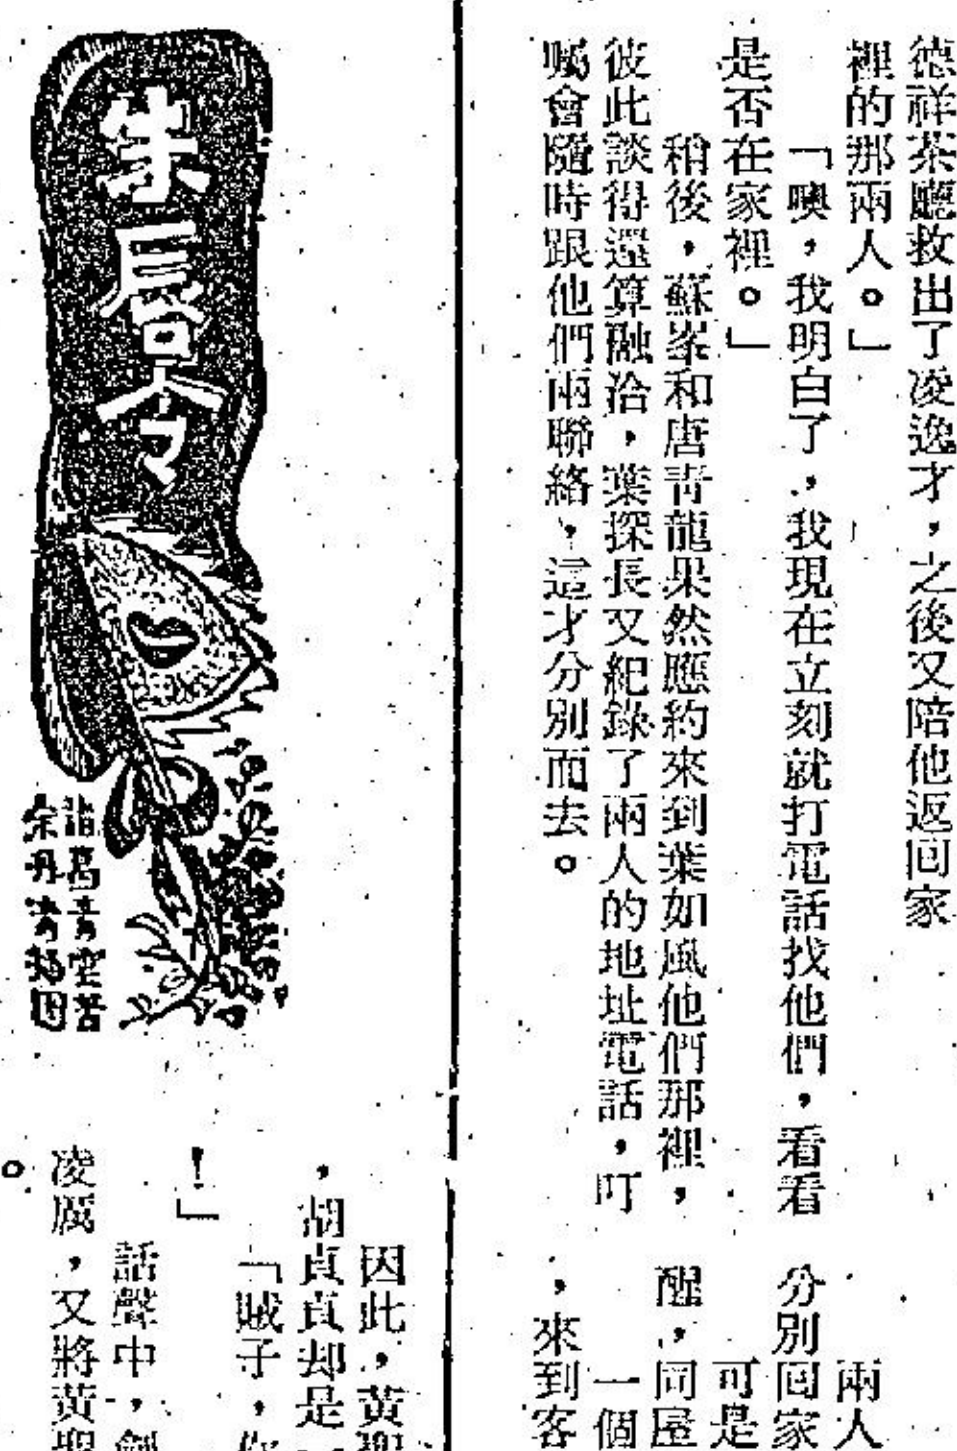 德祥茶廳救出了凌逸才，之後又陪他返回家
裡的那兩人。」
「噢，我明白了，我現在立刻就打電話找他們，看看
是否在家裡。」
稍後，蘇峯和唐青龍果然應約來到葉如風他們那裡，
彼此談得還算融洽，葉探長又紀錄了兩人的地址電話，叮
囑會隨時跟他們兩聯絡，這才分別而去。
兩人
分別回家
可是
醒，同屋
一個
，來到客
朱唇令
諸葛青雲著
宋丹青插圖
因此，黃聖
，胡貞貞却是
「賊子，你
！」
話聲中，劍
凌厲，又將黃聖
。